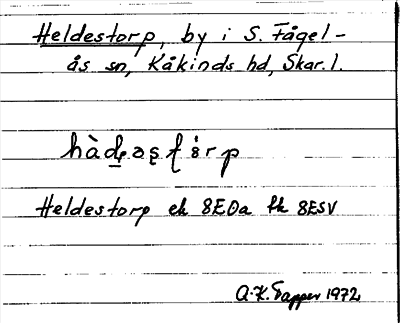 Heldestorp, by i S. Fågel-
ås sn, Kåkinds hd, Skar. l.
Heldestorp ek 8EDa fk 8ESV
A.K. Tapper 1972